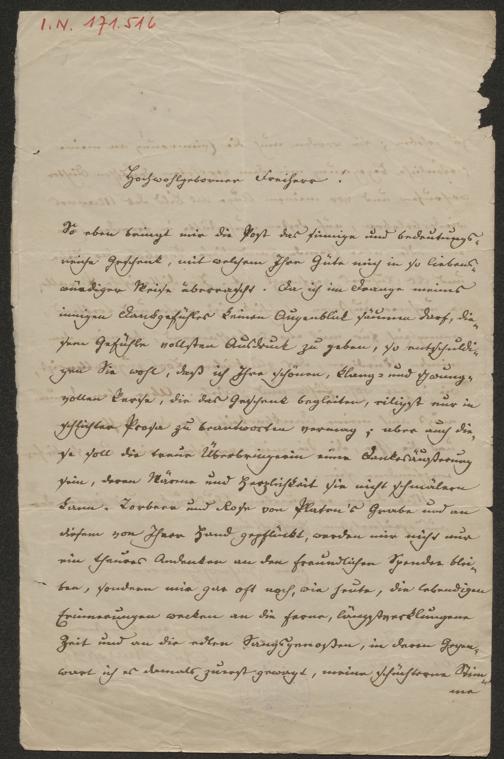 I.N. 171.516
Hochwohlgeborner Freiherr.
So eben bringt mir die Post das sinnige und bedeutungs-
reiche Geschenk, mit welchem Ihre Güte mich in so liebens-
würdiger Weise überrascht. Da ich im Drange meines
innigen Dankgefühles keinen Augenblick säumen darf, die-
sem Gefühle vollsten Ausdruck zu geben, so entschuldi-
gen Sie wohl, daß ich Ihre schönen, klang- und schwung-
vollen Verse, die das Geschenk begleiten, eiligst nur in
schlichter Prosa zu beantworten vermag; aber auch die-
se soll die treue Überbringerin einer Dankesäußerung
sein, deren Wärme und Herzlichkeit sie nicht schmälern
kann. Lorbeer und Rose von Platen's Grabe und an
diesem von Ihrer Hand gepflückt, werden mir nicht nur
ein theures Andenken an den freundlichen Spender blei-
ben, sondern mir gar oft noch, wie heute, die lebendigen
Erinnerungen wecken an die ferne, längstverklungene
Zeit und an die edlen Sangsgenossen, in deren Gegen-
wart ich es damals zuerst gewagt, meine schüchterne Stim-
me